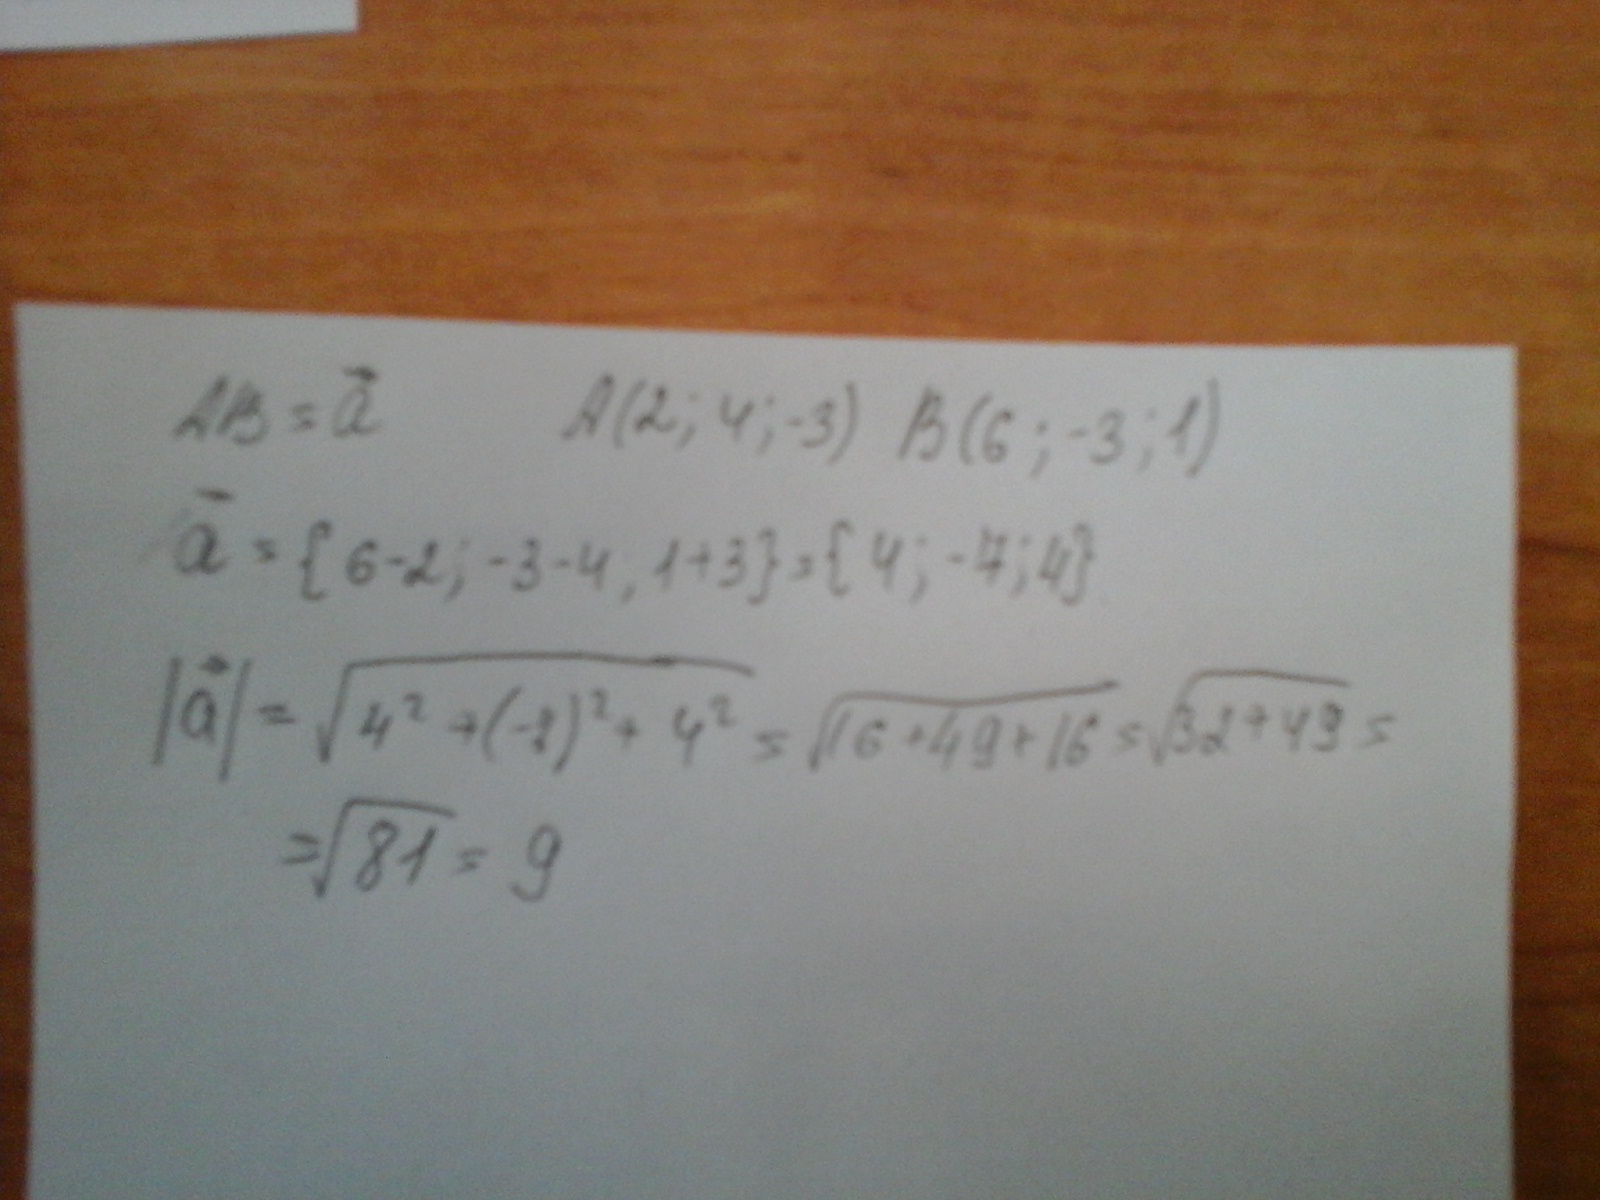 AB = a⃗ A(2; 4; -3) B(6; -3; 1)
a̅ = {6-2; -3-4, 1+3} = {4; -7; 4}
|a⃗| = √(4² + (-7)² + 4²) = √(16+49+16) = √(32+49) =
= √81 = 9